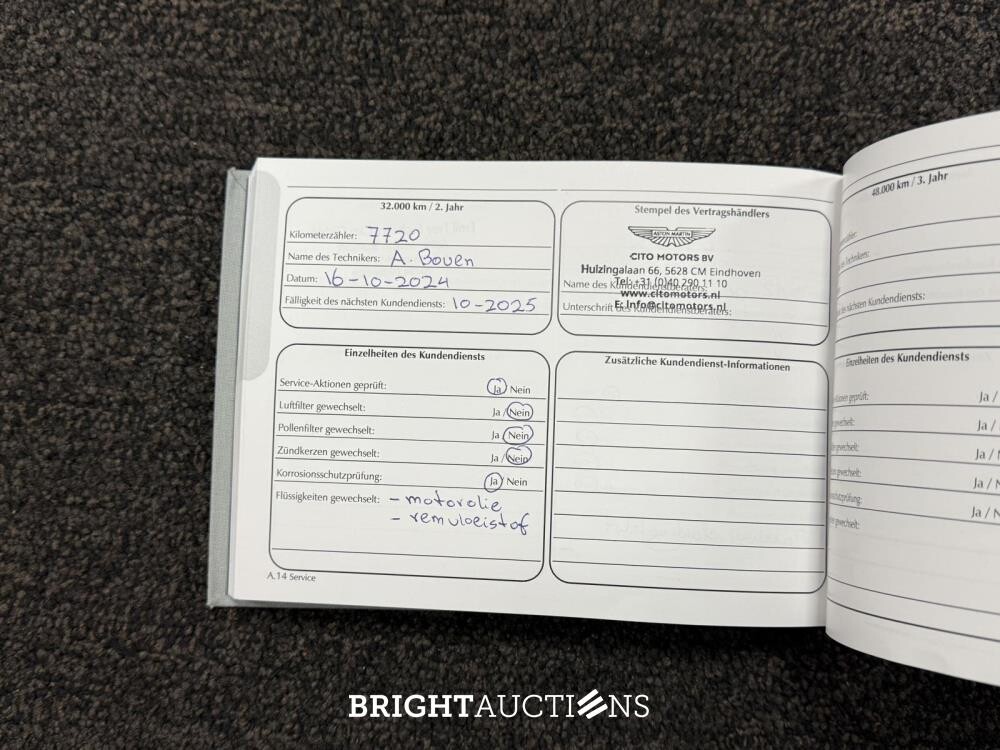 32.000 km / 2. Jahr
Kilometerzähler: 7720
Name des Technikers: A. Boven
Datum: 16-10-2024
Fälligkeit des nächsten Kundendiensts: 10-2025
Stempel des Vertragshändlers
ASTON MARTIN
CITO MOTORS BV
Huizingalaan 66, 5628 CM Eindhoven
Tel: +31 (0)40 290 11 10
Name des Kundendienstberaters:
www.citomotors.nl
E: info@citomotors.nl
Unterschrift des Kundendienstberaters:
Einzelheiten des Kundendiensts
Service-Aktionen geprüft: Ja / Nein
Luftfilter gewechselt: Ja / Nein
Pollenfilter gewechselt: Ja / Nein
Zündkerzen gewechselt: Ja / Nein
Korrosionsschutzprüfung: Ja / Nein
Flüssigkeiten gewechselt: - motorolie
- remvloeistof
Zusätzliche Kundendienst-Informationen
A.14 Service
48.000 km / 3. Jahr
nächsten Kundendiensts:
Einzelheiten des Kundendiensts
geprüft: Ja /
Ja /
Ja /
Ja /
Ja /
BRIGHTAUCTIONS